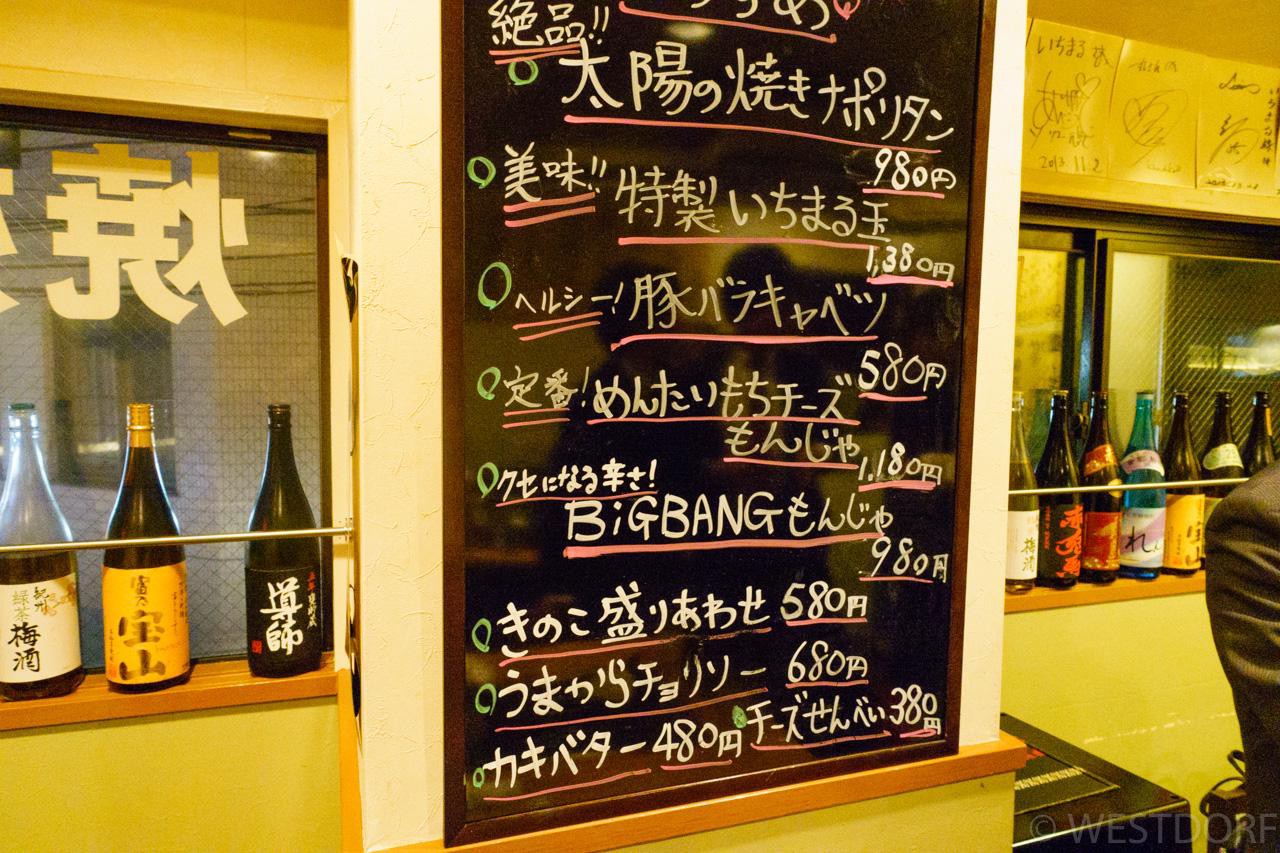 おすすめ
絶品!!
太陽の焼きナポリタン
980円
美味!!
特製いちまる玉
1,380円
ヘルシー!豚バラキャベツ
580円
定番!めんたいもちチーズ
もんじゃ
1,180円
クセになる辛さ!
BiGBANGもんじゃ
980円
きのこ盛りあわせ 580円
うまからチョリソー 680円
カキバター 480円
チーズせんべい 380円
焼
紀州
緑茶
梅酒
富乃
宝山
導師
いちまる
2013.11.2
梅酒
れん
宝山
© WESTDORF